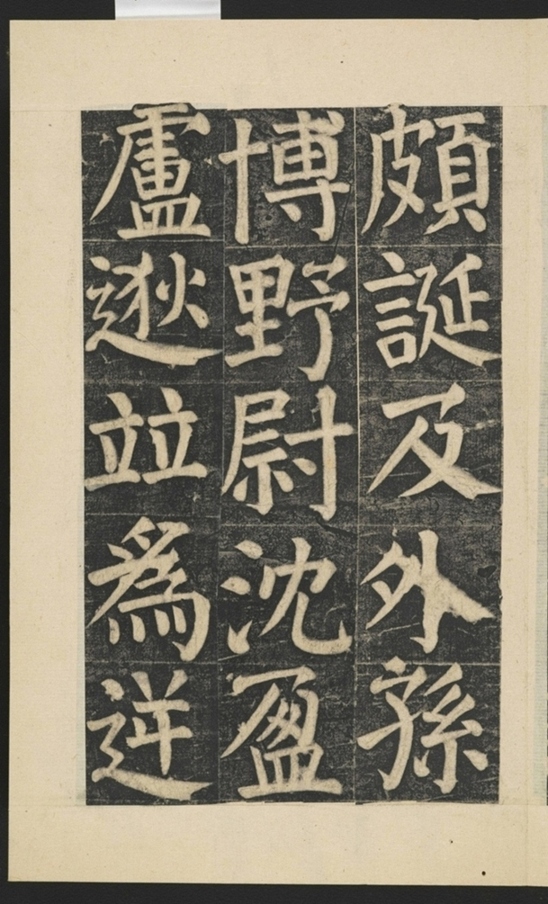 頗誕及外孫
博野尉沈盈
盧逖竝為逆